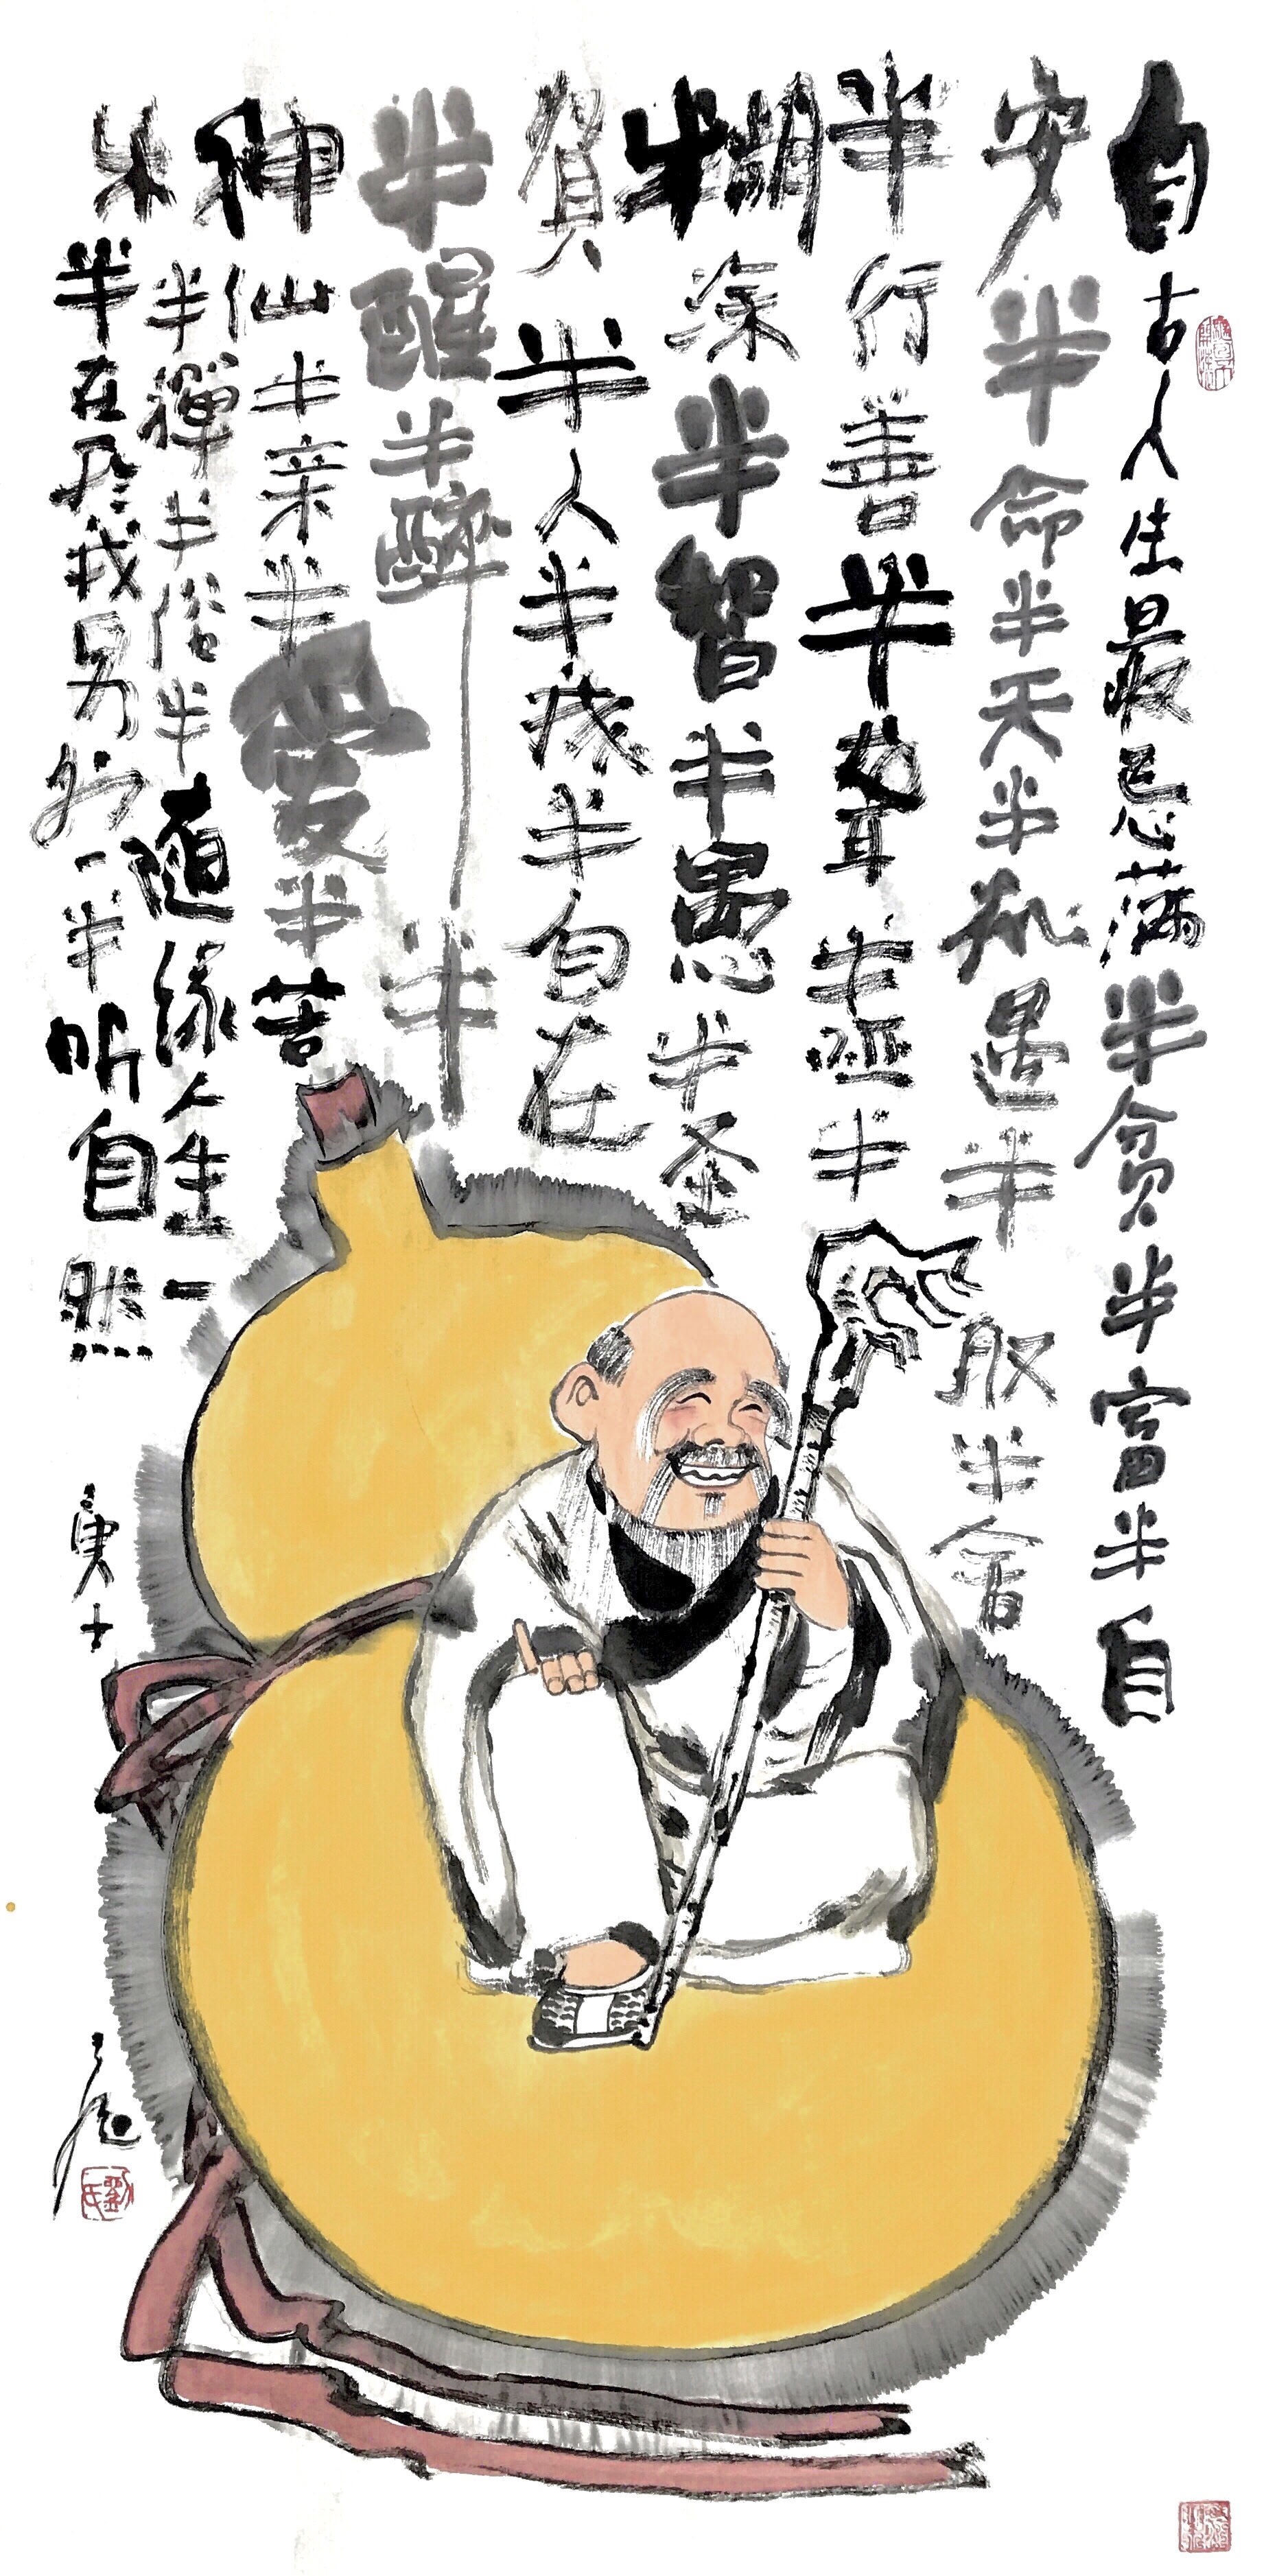 自古人生最忌满半贫半富半自
安半命半天半机遇半取半舍
半行善半聋半哑半
糊涂半智半愚半圣
賢半人半我半自在
半醒半醉半
神仙半亲半愛半苦
乐半禪半俗半随缘人生一
半在于我另外一半听自然